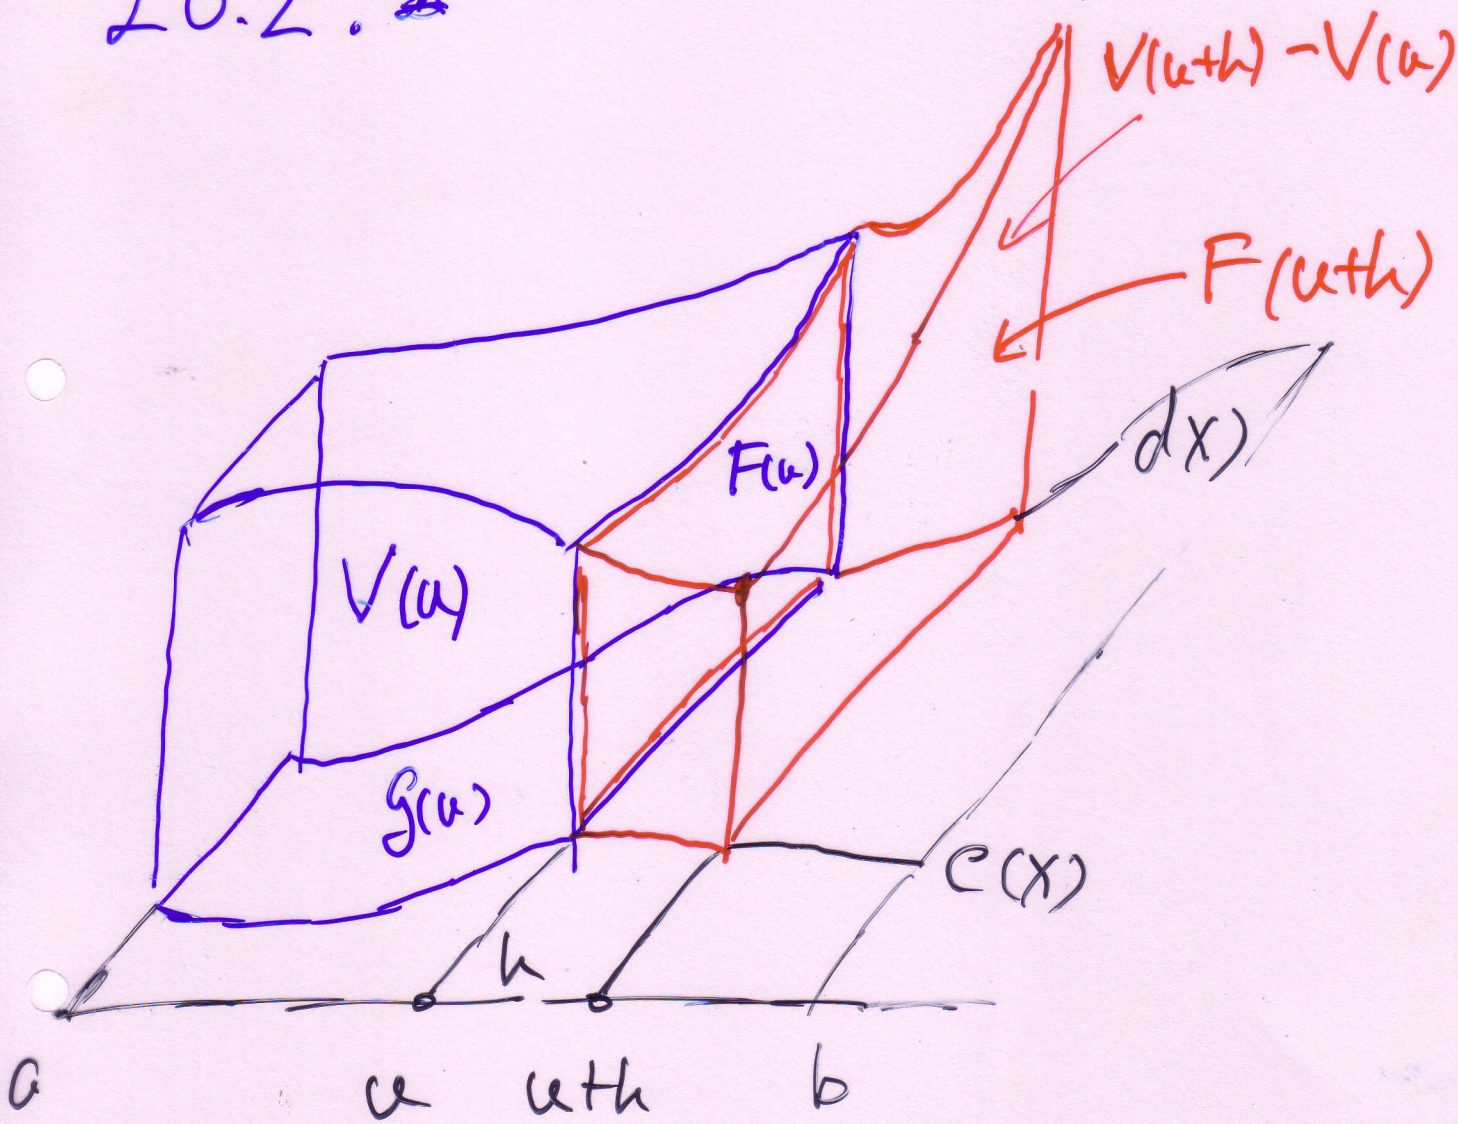 20.2.
V(u+h) - V(u)
F(u+h)
d(x)
F(u)
V(u)
G(u)
C(x)
h
a u u+h b